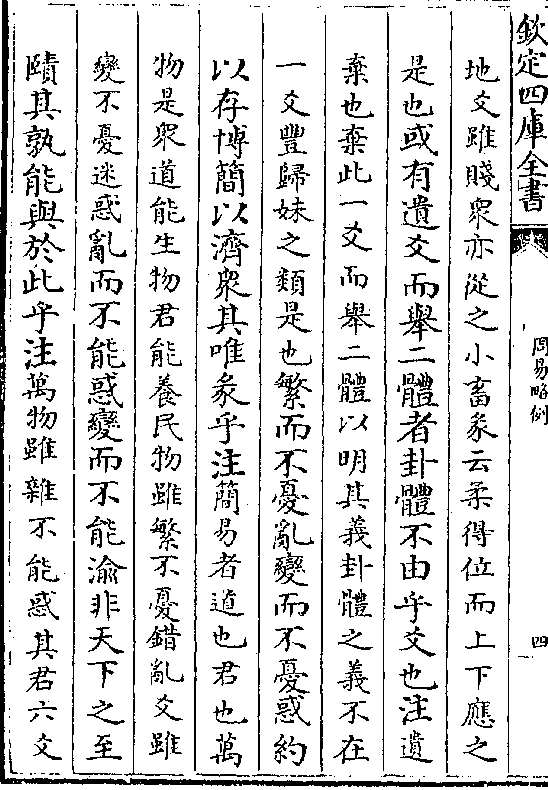 欽定四庫全書
周易略例
四
地爻雖賤衆亦從之小畜彖云柔得位而上下應之
是也或有遺爻而舉二體者卦體不由乎爻也注遺
棄也棄此一爻而舉二體以明其義卦體之義不在
一爻豐歸妹之類是也繁而不憂亂變而不憂惑約
以存博簡以濟衆其唯彖乎注簡易者道也君也萬
物是衆道能生物君能養民物雖繁不憂錯亂爻雖
變不憂迷惑亂而不能惑變而不能渝非天下之至
賾其孰能與於此乎注萬物雖雜不能惑其君六爻